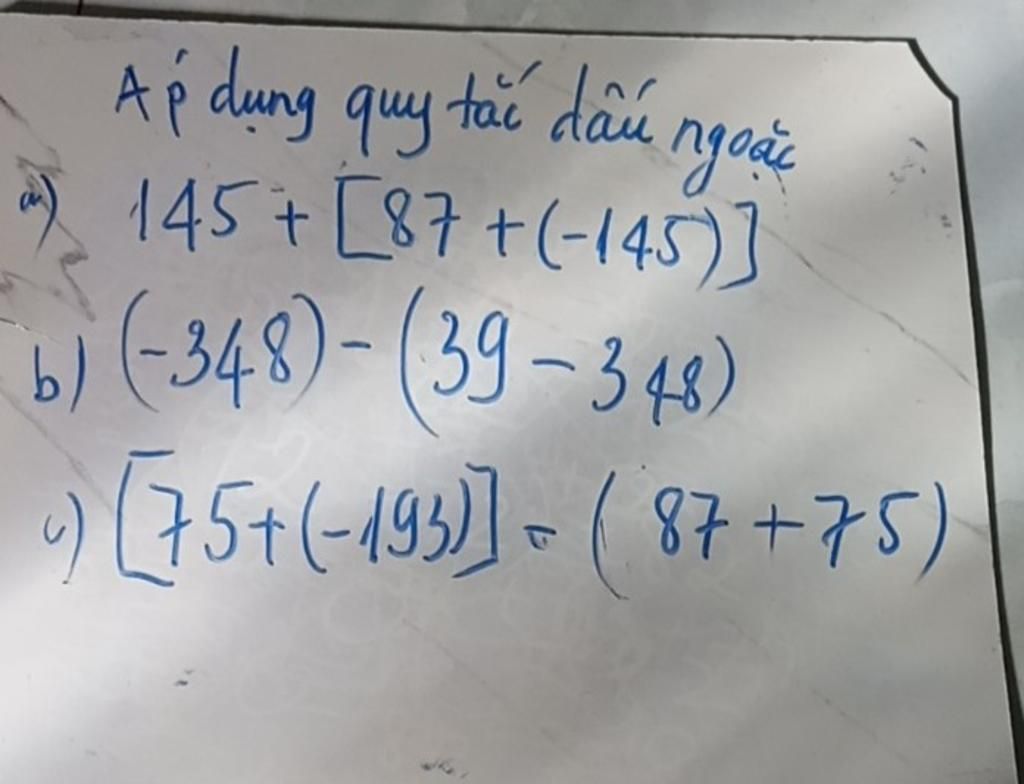 Áp dụng quy tắc dấu ngoặc
a) 145 + [87 + (-145)]
b) (-348) - (39 - 348)
c) [75+(-193)] - (87 + 75)